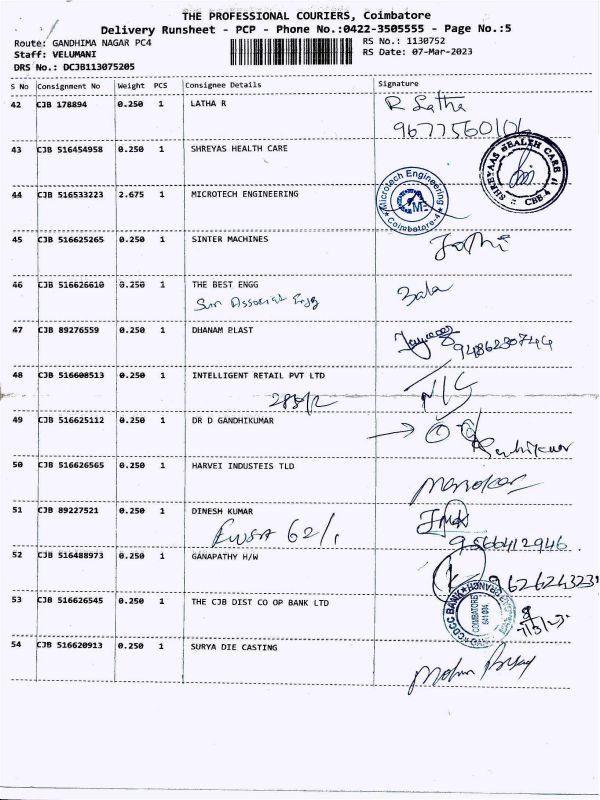 THE PROFESSIONAL COURIERS, Coimbatore
Delivery Runsheet - PCP - Phone No.:0422-3505555 - Page No.:5
Route: GANDHIMA NAGAR PC4
RS No.: 1130752
Staff: VELUMANI
RS Date: 07-Mar-2023
DRS No.: DCJB113075205
S No Consignment No Weight PCS Consignee Details Signature
42 CJB 178894 0.250 1 LATHA R R Latha
9677560106
43 CJB 516454958 0.250 1 SHREYAS HEALTH CARE SHREYAAS HEALTH CARE CBE-4
44 CJB 516533223 2.675 1 MICROTECH ENGINEERING Microtech Engineering ME Coimbatore-4
45 CJB 516625265 0.250 1 SINTER MACHINES
46 CJB 516626610 0.250 1 THE BEST ENGG Bala
Sun Associat Engg
47 CJB 89276559 0.250 1 DHANAM PLAST
9486230744
48 CJB 516608513 0.250 1 INTELLIGENT RETAIL PVT LTD N/S
49 CJB 516625112 0.250 1 DR D GANDHIKUMAR
50 CJB 516626565 0.250 1 HARVEI INDUSTEIS TLD Manokar
51 CJB 89227521 0.250 1 DINESH KUMAR
9566412946
52 CJB 516488973 0.250 1 GANAPATHY H/W
53 CJB 516626545 0.250 1 THE CJB DIST CO OP BANK LTD CDCC BANK COIMBATORE 641 004
7/3/23
54 CJB 516620913 0.250 1 SURYA DIE CASTING Mohan